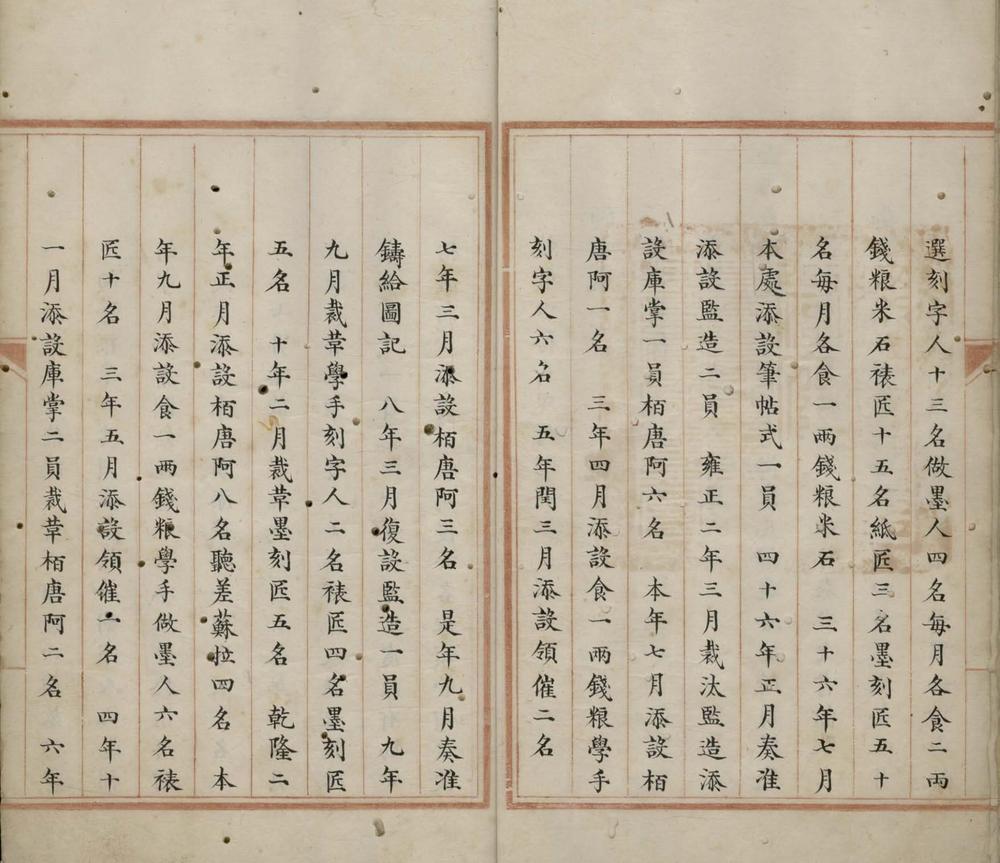 選刻字人十三名做墨人四名每月各食二兩
錢粮米石裱匠十五名紙匠三名墨刻匠五十
名每月各食一兩錢粮米石　三十六年七月
本處添設筆帖式一員　四十六年正月奏准
添設監造二員　雍正二年三月裁汰監造添
設庫掌一員栢唐阿六名　本年七月添設栢
唐阿一名　三年四月添設食一兩錢粮學手
刻字人六名　五年閏三月添設領催二名
七年三月添設栢唐阿三名　是年九月奏准
鑄給圖記　八年三月復設監造一員　九年
九月裁革學手刻字人二名裱匠四名墨刻匠
五名　十年二月裁革墨刻匠五名　乾隆二
年正月添設栢唐阿八名聽差蘇拉四名　本
年九月添設食一兩錢粮學手做墨人六名裱
匠十名　三年五月添設領催一名　四年十
一月添設庫掌二員裁革栢唐阿二名　六年